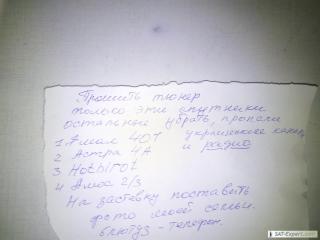 Прошить тюнер
только эти спутники
остальные убрать, пропали
1 Ямал 401 украинские канал
2 Астра 4А и радио
3 Hotbirot
4 Амос 2/3
На заставку поставить
фото моей семьи.
блютуз - телефон.
SAT-Expert.com